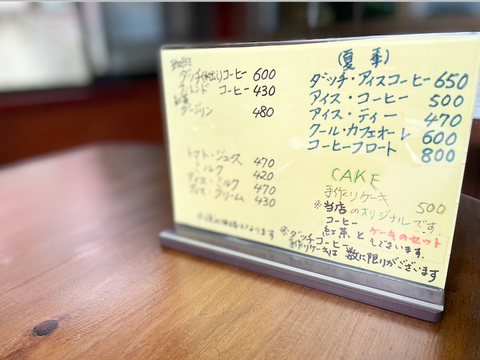 ダッチ(水出し)コーヒー 600
ブレンド コーヒー 430
紅茶
ダージリン 480
トマト・ジュース 470
ミルク 420
アイス・ミルク 470
アイス・クリーム 430
(夏季)
ダッチ・アイスコーヒー 650
アイス・コーヒー 500
アイス・ティー 470
クール・カフェオーレ 600
コーヒーフロート 800
CAKE
手作りケーキ 500
※当店のオリジナルです
コーヒー
紅茶とケーキのセット
もございます.
※ダッチコーヒー
手作りケーキは数に限りがございます